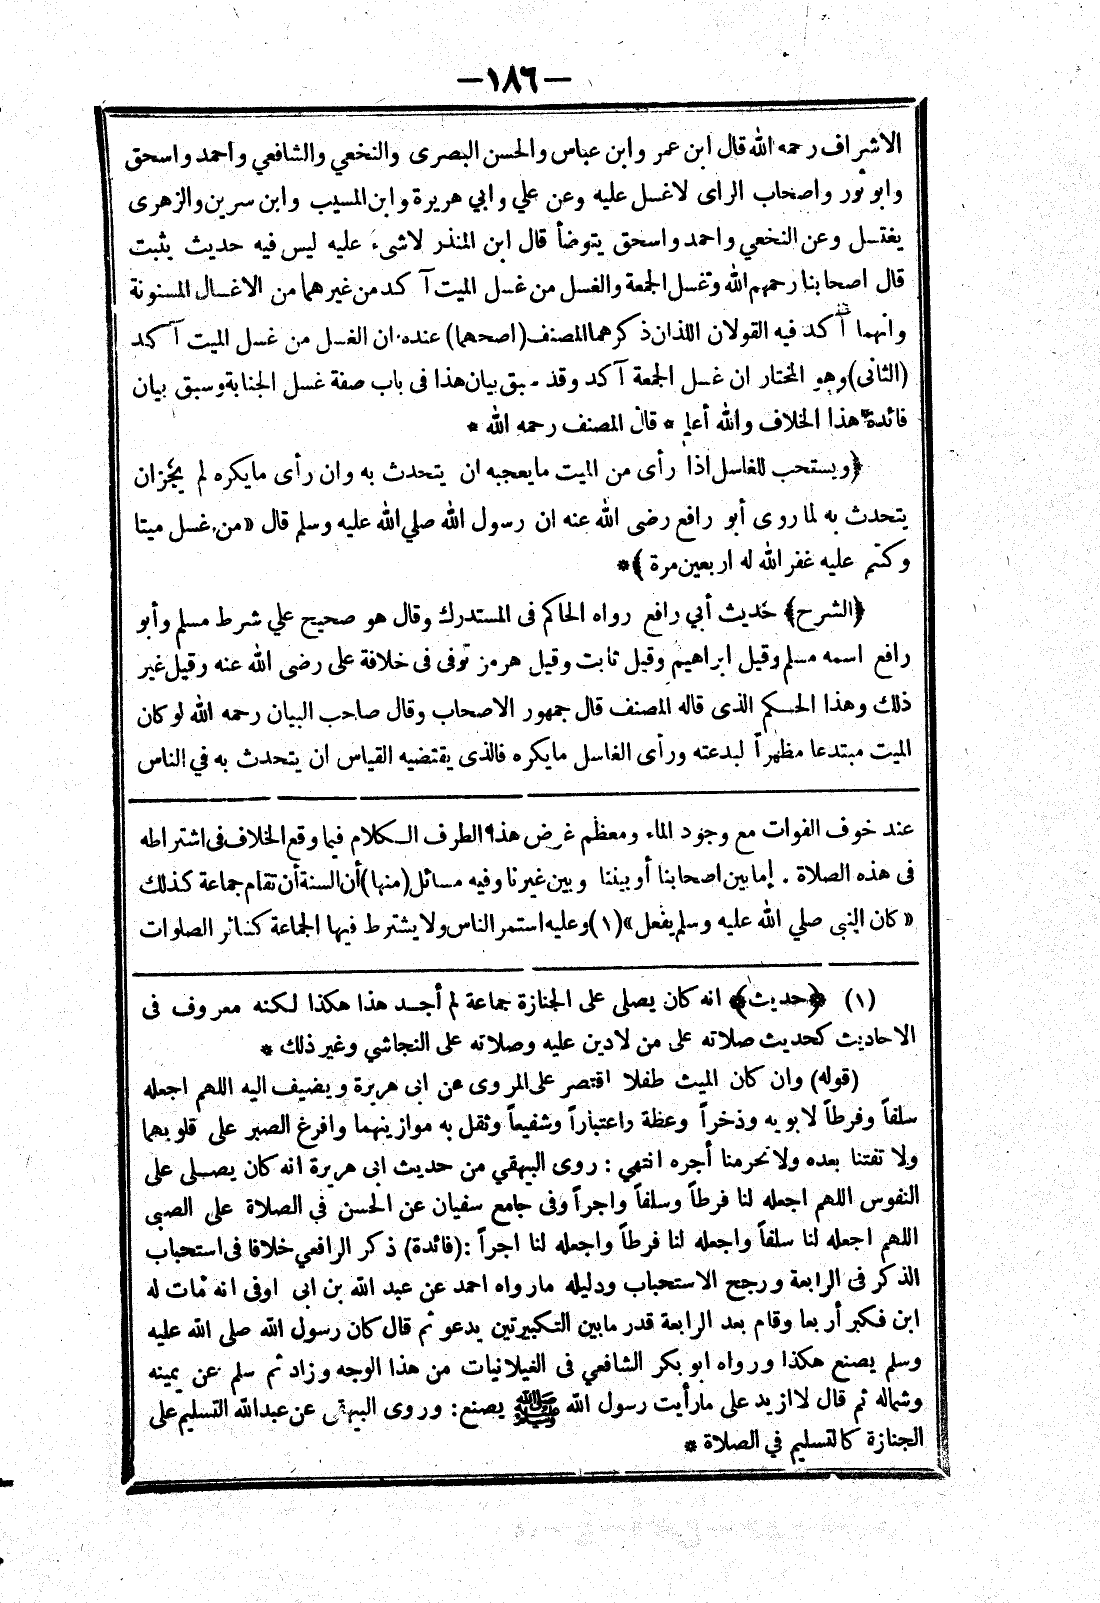 —١٨٦—
الاشراف رحمه الله قال ابن عمر وابن عباس والحسن البصرى والنخعي والشافعي واحمد واسحق
وابو ثور واصحاب الراى لا غسل عليه وعن علي وابي هريرة وابن المسيب وابن سرين والزهرى
يغتسل وعن النخعي واحمد واسحق يتوضأ قال ابن المنذر لاشىء عليه ليس فيه حديث يثبت
قال اصحابنا رحمهم الله وتغسل الجمعة والغسل من غسل الميت آكد من غيرهما من الاغسال المسنونة
وانهما آكد فيه القولان اللذان ذكرهما المصنف (اصحهما) عنده ان الغسل من غسل الميت آكد
(الثانى) وهو المختار ان غسل الجمعة آكد وقد سبق بيان هذا فى باب صفة غسل الجنابة وسبق بيان
فائدة هذا الخلاف والله أعلم * قال المصنف رحمه الله *
﴿ويستحب للغاسل اذا رأى من الميت مايعجبه ان يتحدث به وان رأى مايكره لم يجز ان
يتحدث به لما روى أبو رافع رضى الله عنه ان رسول الله صلي الله عليه وسلم قال «من غسل ميتا
وكتم عليه غفر الله له اربعين مرة ﴾*
﴿الشرح﴾ حديث أبي رافع رواه الحاكم فى المستدرك وقال هو صحيح علي شرط مسلم وأبو
رافع اسمه مسلم وقيل ابراهيم وقيل ثابت وقيل هرمز توفى فى خلافة على رضى الله عنه وقيل غير
ذلك وهذا الحكم الذى قاله المصنف قال جمهور الاصحاب وقال صاحب البيان رحمه الله لو كان
الميت مبتدعا مظهراً لبدعته ورأى الغاسل مايكره فالذى يقتضيه القياس ان يتحدث به في الناس
عند خوف الفوات مع وجود الماء ومعظم غرض هذا الطرف الكلام فيما وقع الخلاف فى اشتراطه
فى هذه الصلاة . إما بين اصحابنا أو بيننا وبين غيرنا وفيه مسائل (منها) أن السنة أن تقام جماعة كذلك
«كان النبى صلي الله عليه وسلم يفعل» (١) وعليه استمر الناس ولا يشترط فيها الجماعة كسائر الصلوات
(١) ﴿حديث﴾ انه كان يصلى على الجنازة جماعة لم أجد هذا هكذا لكنه معروف فى
الاحاديث كحديث صلاته على من لادين عليه وصلاته على النجاشي وغير ذلك *
(قوله) وان كان الميت طفلا اقتصر على المروى عن ابى هريرة ويضيف اليه اللهم اجعله
سلفاً وفرطاً لابويه وذخراً وعظة واعتباراً وشفيعاً وثقل به موازينهما وافرغ الصبر على قلوبهما
ولا تفتنا بعده ولا تحرمنا أجره انتهي : روى البيهقي من حديث ابى هريرة انه كان يصلى على
النفوس اللهم اجعله لنا فرطاً وسلفاً واجراً وفى جامع سفيان عن الحسن في الصلاة على الصبى
اللهم اجعله لنا سلفاً واجعله لنا فرطاً واجعله لنا اجراً :(فائدة) ذكر الرافعي خلافا فى استحباب
الذكر فى الرابعة ورجح الاستحباب ودليله مارواه احمد عن عبد الله بن ابى اوفى انه مات له
ابن فكبر أربعا وقام بعد الرابعة قدر مابين التكبيرتين يدعو ثم قال كان رسول الله صلى الله عليه
وسلم يصنع هكذا ورواه ابو بكر الشافعي فى الغيلانيات من هذا الوجه وزاد ثم سلم عن يمينه
وشماله ثم قال لا ازيد على مارأيت رسول الله ﷺ يصنع: وروى البيهقى عن عبدالله التسليم على
الجنازة كالتسليم في الصلاة *